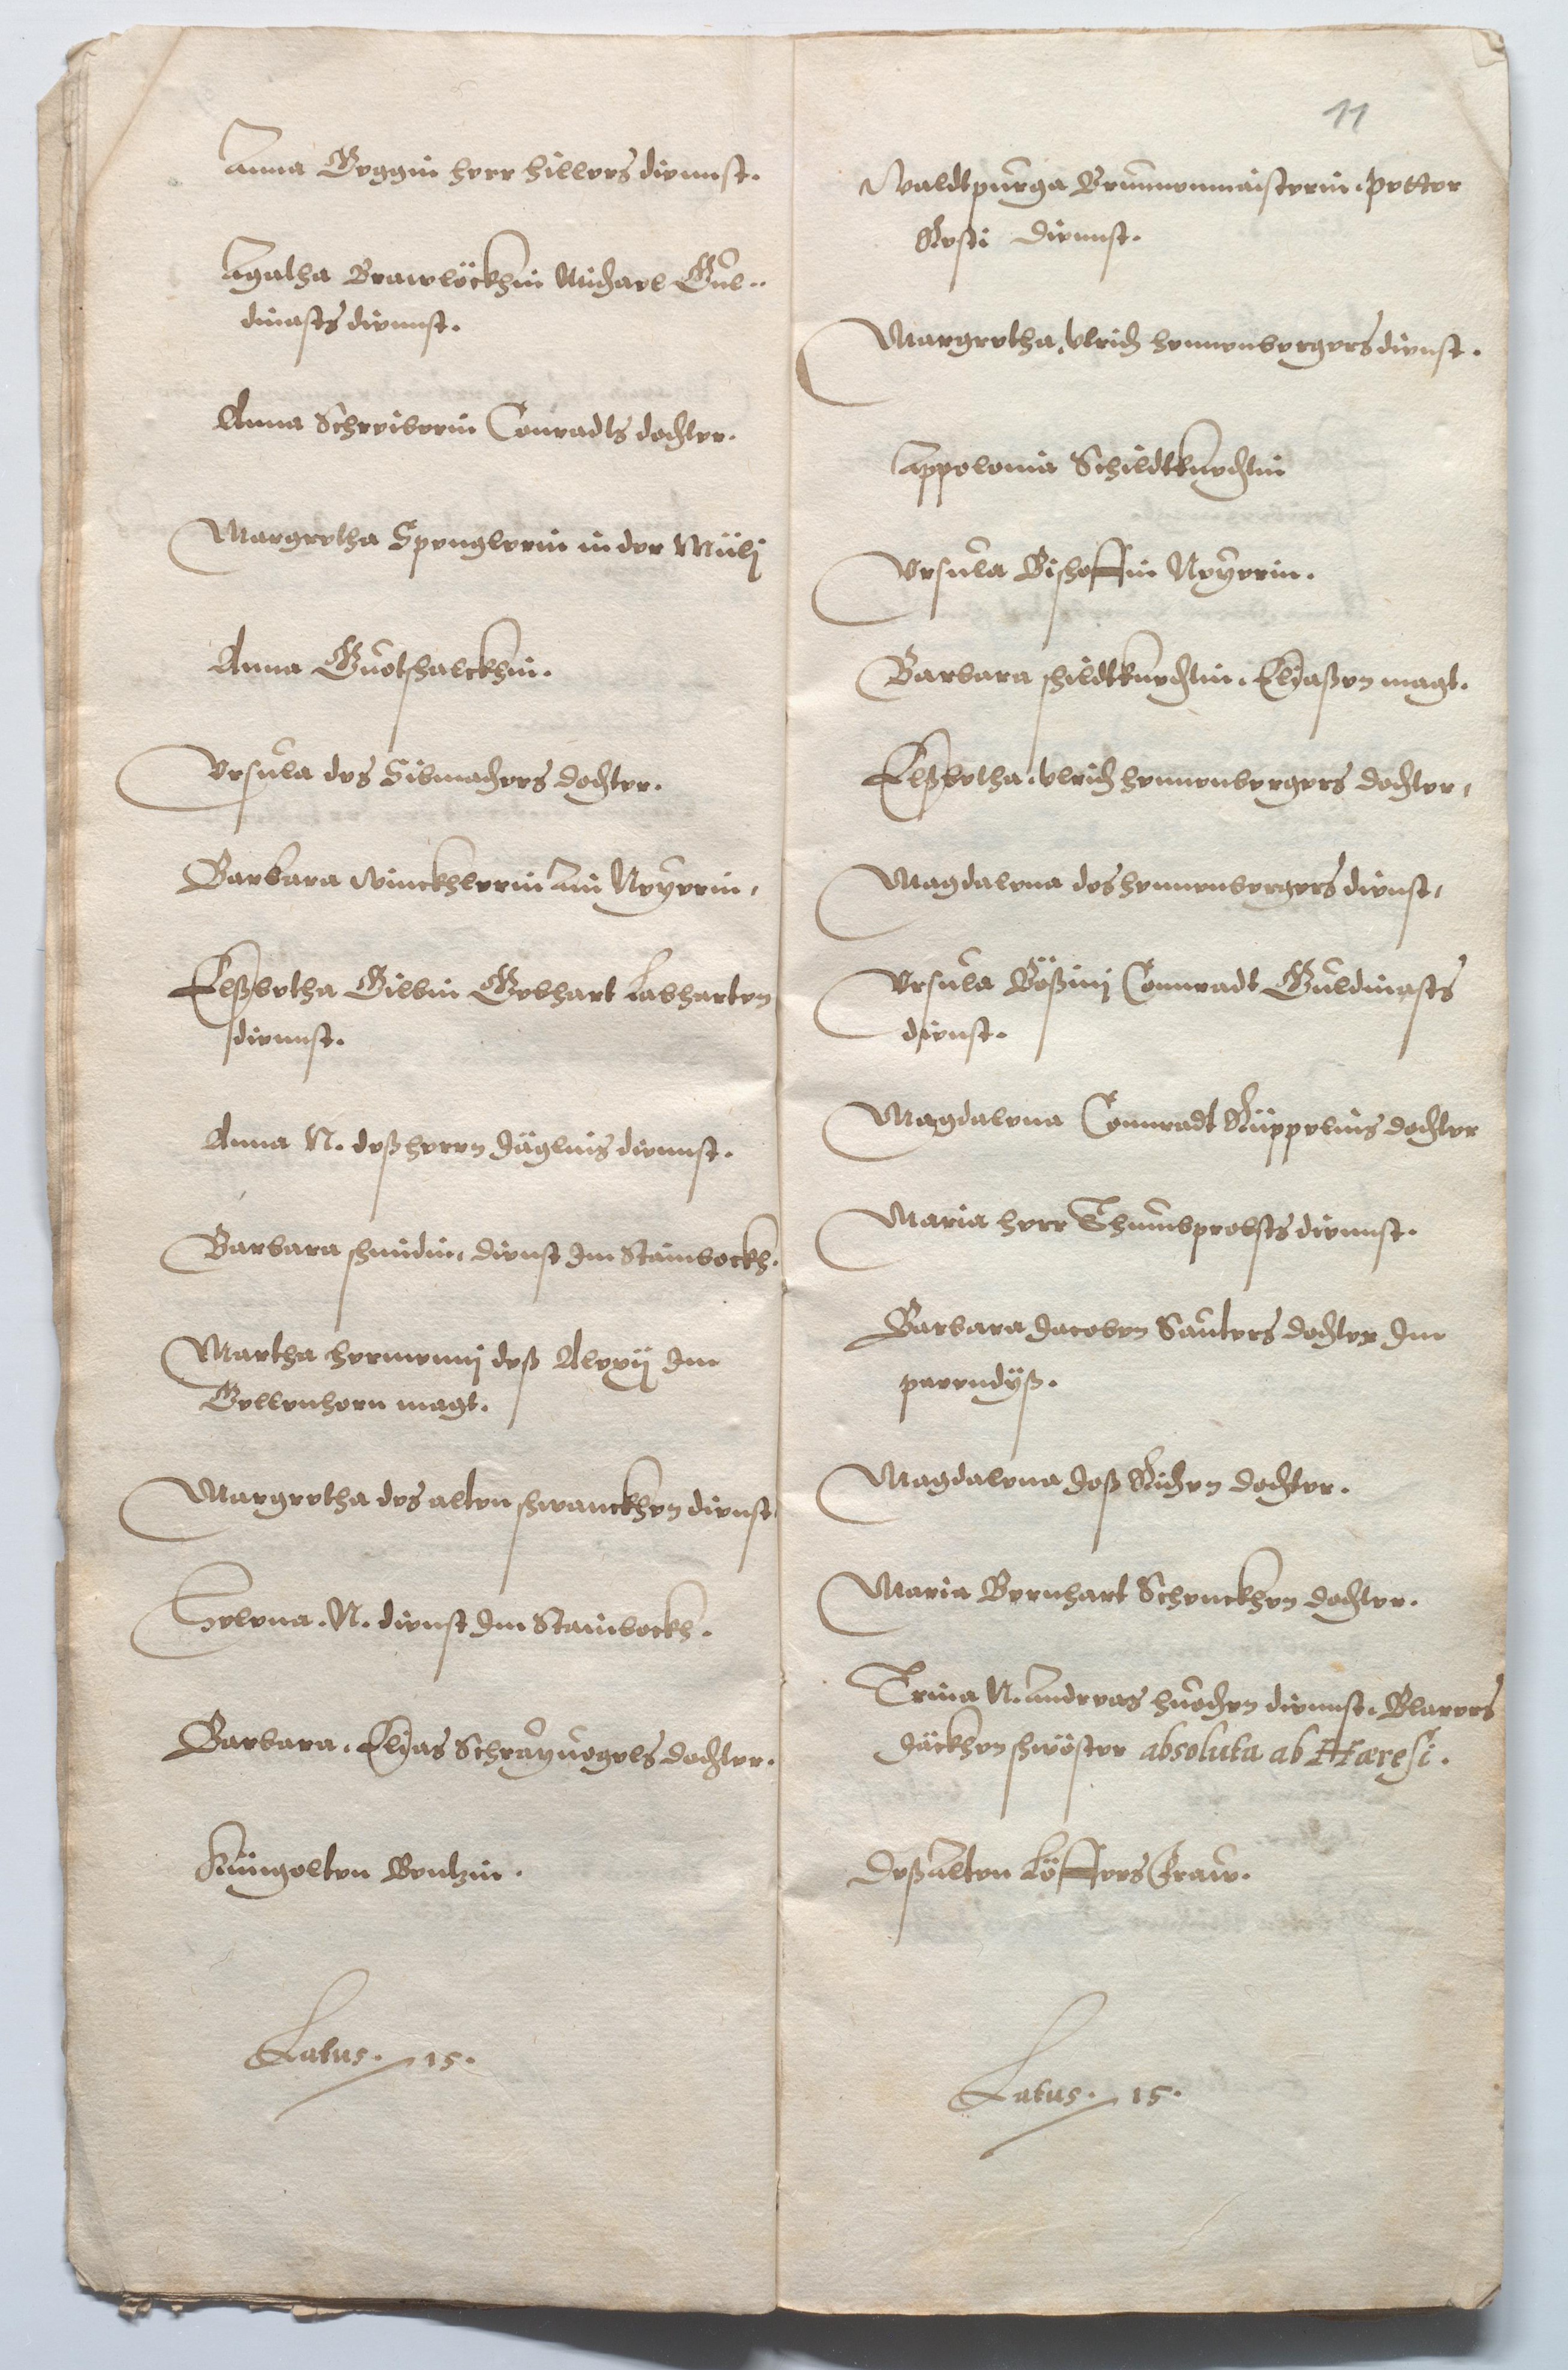 Anna Geggin herr Hillers diennst.
Agatha Brawlöckhin Michael Gul¬
dinasts diennst.
Anna Schreiberin Conradts dochter.
Margretha Spenglerin in der Mülj
Anna Guotschalckhin.
Vrsula des Sibmachers dochter.
Barbara Winckhlerin ain Neyerin,
Elßbetha Gilbin Gebhart Labharten
diennst.
Anna N. deß herren Jäglins diennst.
Barbara schmidin, dienst Im Stainbockh.
Martha hermennj deß Alexij Im
Gellenhorn magt.
Margretha des alten schwanckhen dienst.
Helena. N. dienst Im Stainbockh.
Barbara. Elias Schrayuogels dochter.
Küngolten Bentzin.
Latus. 15.
11
Waldtpurga Brunnenmaisterin. Petter
Resti diennst.
Margretha, Vlrich hennenbergers dienst.
Appolonia Schildtknechtin
Vrsula Bischoffin Neyerin.
Barbara schildtknechtin. Eliaßen magt.
Elßbetha. Vlrich hennenbergers dochter,
Magdalena des hennenbergers dienst,
Vrsula Bößinj Connradt Guldinasts
dienst.
Magdalena Connradt Rüppelins dochter
Maria herr Thumbprobsts diennst.
Barbara Jacoben Sauters dochter Im
parendyß.
Magdalena Joß Richen dochter.
Maria Bernhart Schenckhen dochter.
Trina N. Andreas huochen diennst. Blarers
Jäckhen schwöster absoluta ab Hæresi.
Deß alten Löffers Fraw.
Latus. 15.